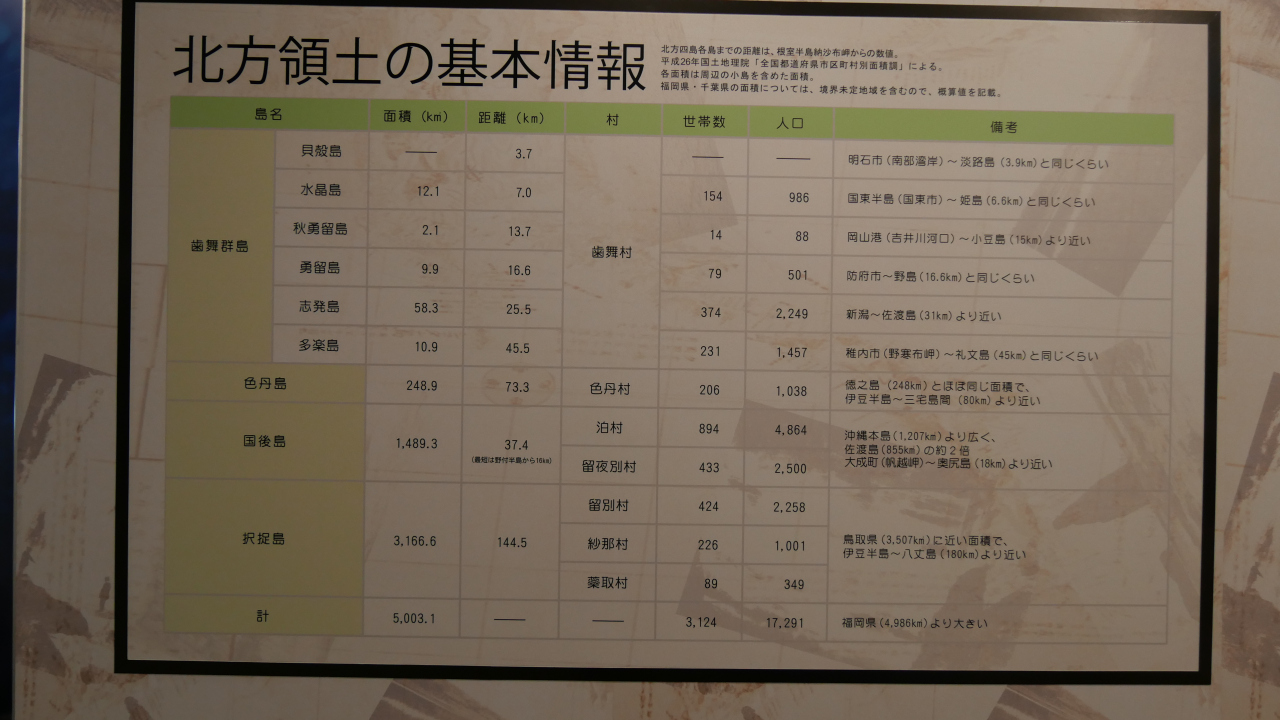 北方領土の基本情報
北方四島各島までの距離は、根室半島納沙布岬からの数値。
平成26年国土地理院「全国都道府県市区町村別面積調」による。
各面積は周辺の小島を含めた面積。
福岡県・千葉県の面積については、境界未定地域を含むので、概算値を記載。
島名 面積（km） 距離（km） 村 世帯数 人口 備考
歯舞群島 歯舞村
貝殻島 —— 3.7 —— —— 明石市（南部湾岸）～淡路島（3.9km）と同じくらい
水晶島 12.1 7.0 154 986 国東半島（国東市）～姫島（6.6km）と同じくらい
秋勇留島 2.1 13.7 14 88 岡山港（吉井川河口）～小豆島（15km）より近い
勇留島 9.9 16.6 79 501 防府市～野島（16.6km）と同じくらい
志発島 58.3 25.5 374 2,249 新潟～佐渡島（31km）より近い
多楽島 10.9 45.5 231 1,457 稚内市（野寒布岬）～礼文島（45km）と同じくらい
色丹島 248.9 73.3 色丹村 206 1,038 徳之島（248km）とほぼ同じ面積で、
伊豆半島～三宅島間（80km）より近い
国後島 1,489.3 37.4
（最短は野付半島から16km）
泊村 894 4,864
留夜別村 433 2,500
沖縄本島（1,207km）より広く、
佐渡島（855km）の約２倍
大成町（帆越岬）～奥尻島（18km）より近い
択捉島 3,166.6 144.5
留別村 424 2,258
紗那村 226 1,001
蘂取村 89 349
鳥取県（3,507km）に近い面積で、
伊豆半島～八丈島（180km）より近い
計 5,003.1 —— —— 3,124 17,291 福岡県（4,986km）より大きい